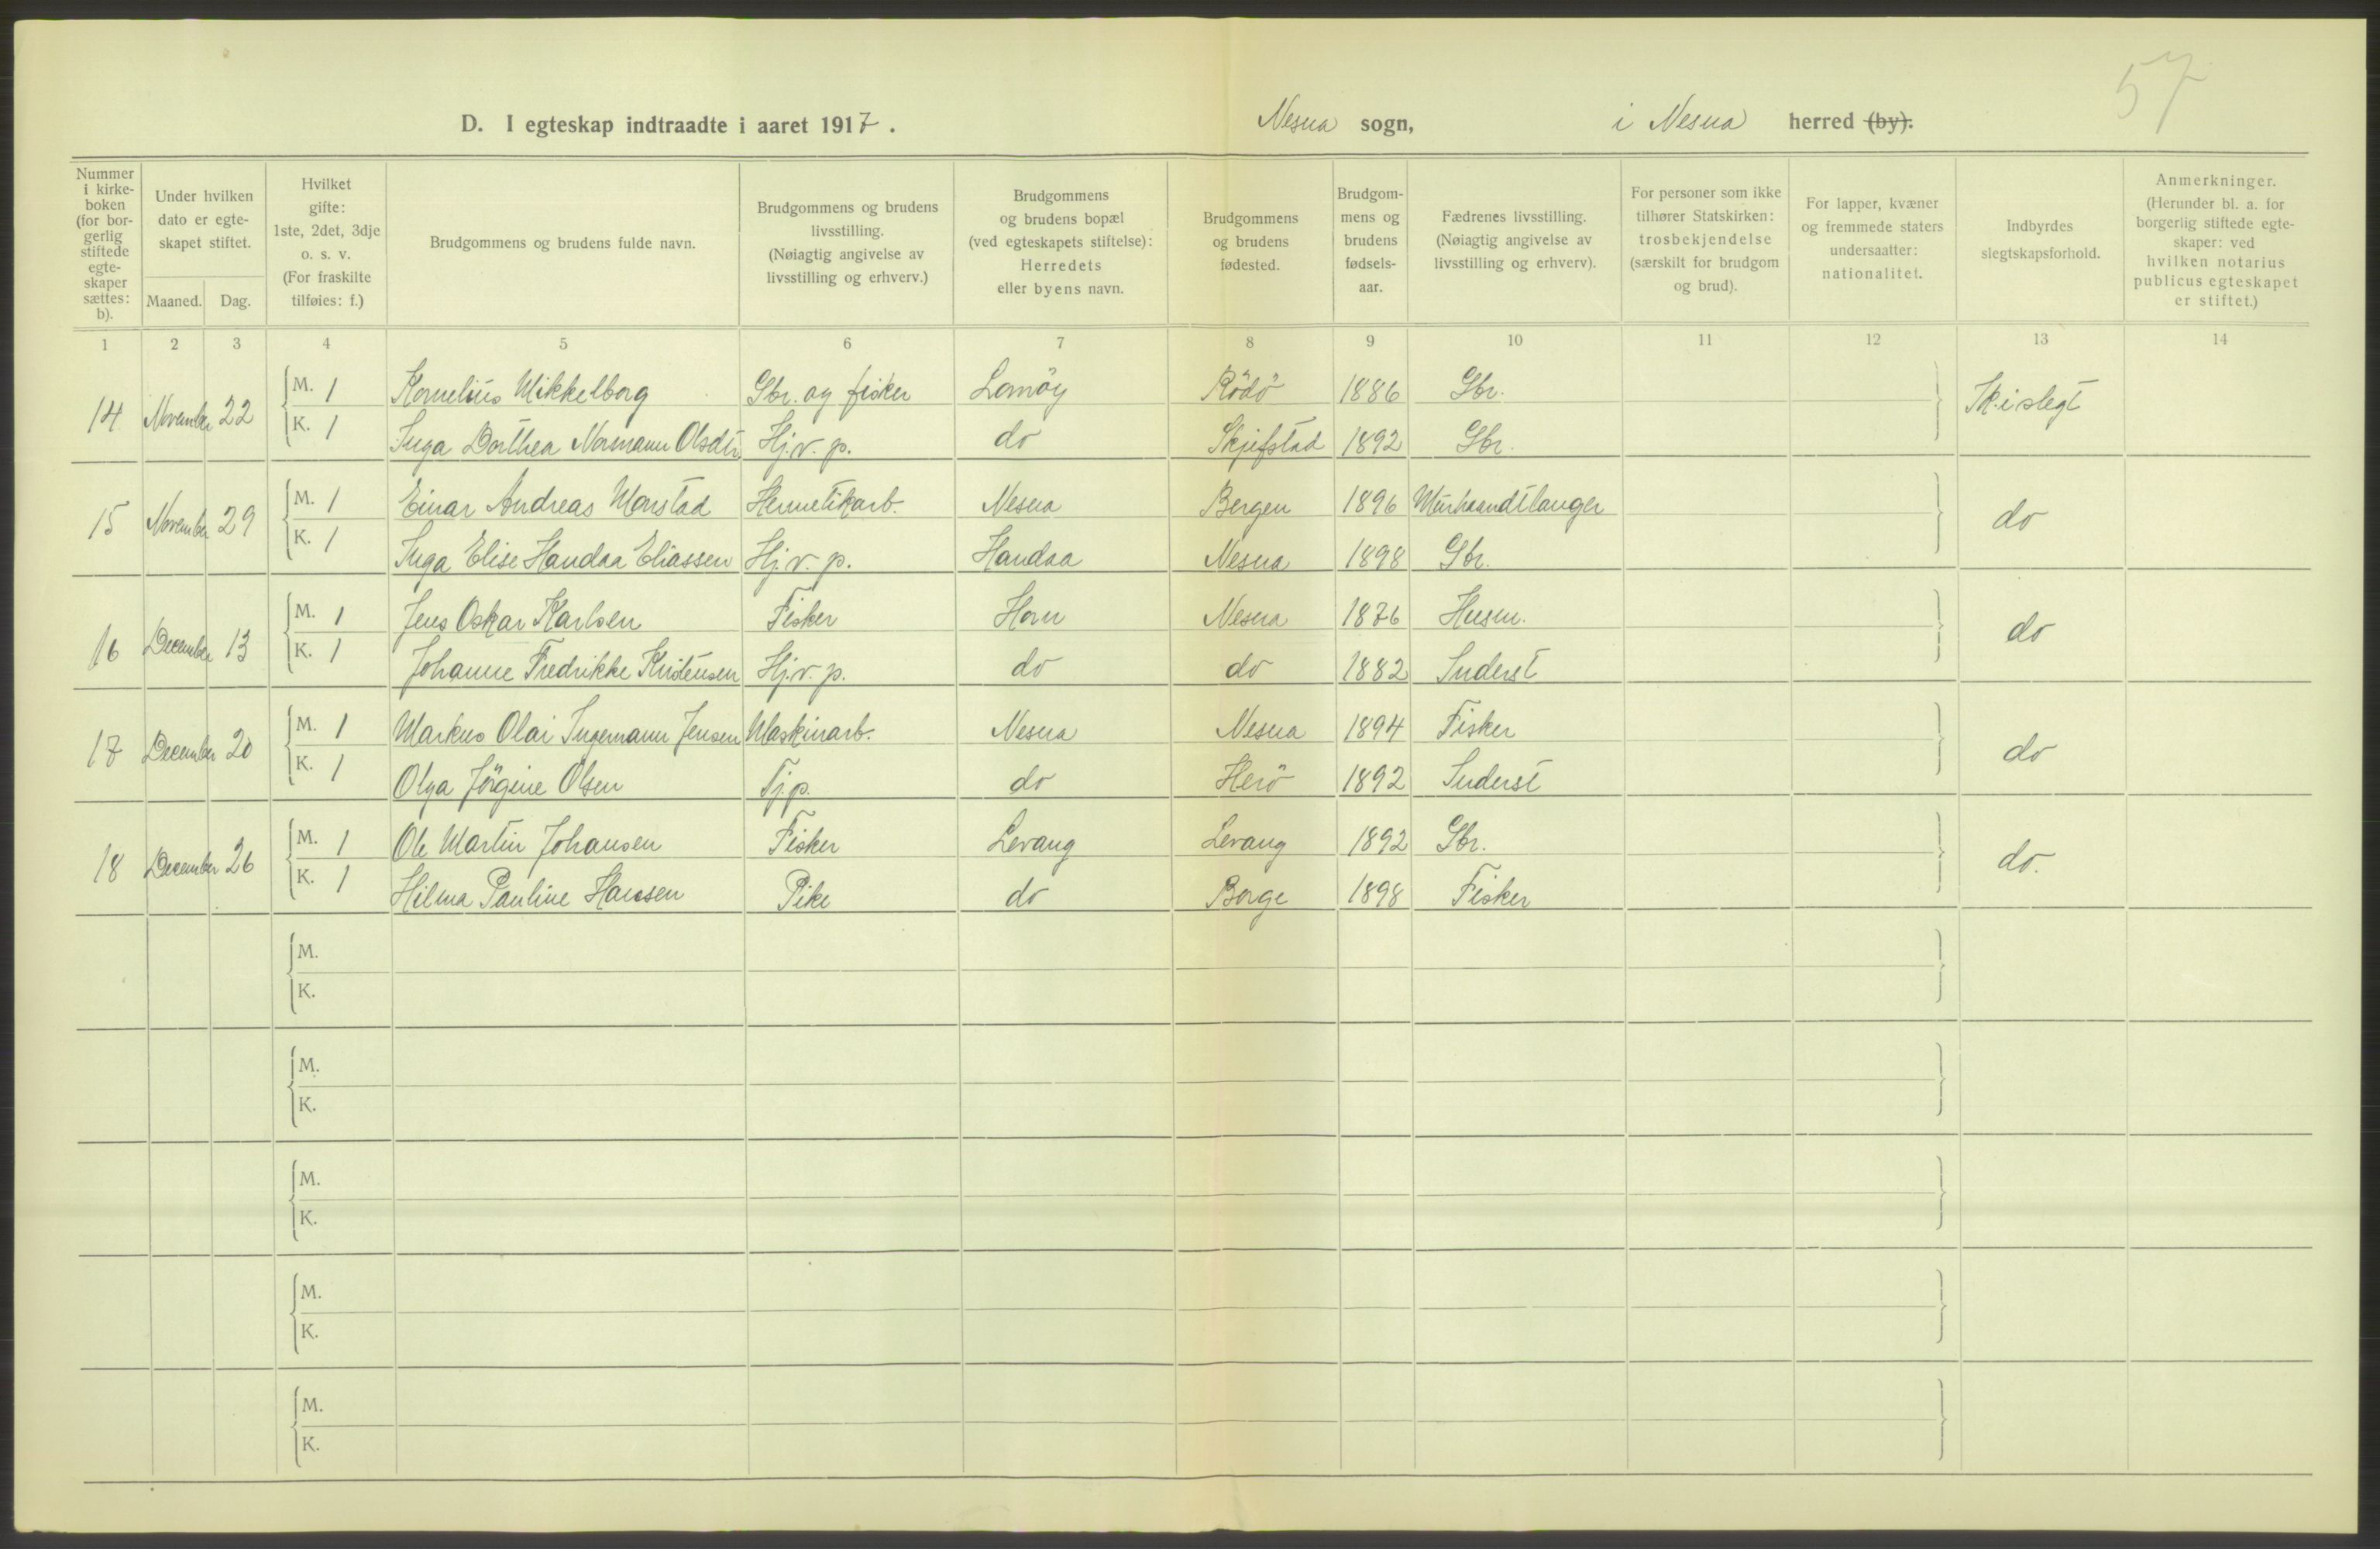 57
D. I egteskap indtraadte i aaret 1917. Nesna sogn, i Nesna herred (by).
Nummer i kirkeboken (for borgerlig stiftede egteskaper sættes: b).
Under hvilken dato er egteskapet stiftet.
Maaned. Dag.
Hvilket gifte: 1ste, 2det, 3dje o. s. v. (For fraskilte tilføies: f.)
Brudgommens og brudens fulde navn.
Brudgommens og brudens livsstilling. (Nøiagtig angivelse av livsstilling og erhverv.)
Brudgommens og brudens bopæl (ved egteskapets stiftelse): Herredets eller byens navn.
Brudgommens og brudens fødested.
Brudgommens og brudens fødselsaar.
Fædrenes livsstilling. (Nøiagtig angivelse av livsstilling og erhverv).
For personer som ikke tilhører Statskirken: trosbekjendelse (særskilt for brudgom og brud).
For lapper, kvæner og fremmede staters undersaatter: nationalitet.
Indbyrdes slegtskapsforhold.
Anmerkninger. (Herunder bl. a. for borgerlig stiftede egteskaper: ved hvilken notarius publicus egteskapet er stiftet.)
1 2 3 4 5 6 7 8 9 10 11 12 13 14
14 November 22 M. 1 Kornelius Mikkelborg Gbr. og fisker Lomöy Rödö 1886 Gbr. Ik. i slegt
K. 1 Inga Dorthea Normann Olsdtr. Hj. v. p. do Skjefstad 1892 Gbr.
15 November 29 M. 1 Einar Andreas Monstad Hermetikarb. Nesna Bergen 1896 Murhaandtlanger do
K. 1 Inga Elise Handaa Eliassen Hj. v. p. Handaa Nesna 1898 Gbr.
16 December 13 M. 1 Jens Oskar Karlsen Fisker Horn Nesna 1876 Husm. do
K. 1 Johanne Fredrikke Kristensen Hj. v. p. do do 1882 Inderst
17 December 20 M. 1 Markus Olai Ingemann Jensen Maskinarb. Nesna Nesna 1894 Fisker do
K. 1 Olga Jörgine Olsen Tj. p. do Herö 1892 Inderst
18 December 26 M. 1 Ole Martin Johansen Fisker Levang Levang 1892 Gbr. do.
K. 1 Hilma Pauline Hansen Pike do Borge 1898 Fisker
M.
K.
M.
K.
M.
K.
M.
K.
M.
K.